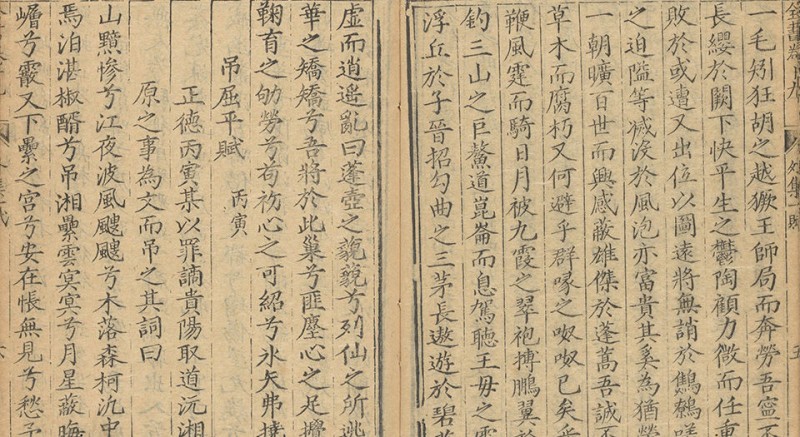 一毛矧狂胡之越獗王師局而奔勞吾寧不
長纓於闕下快平生之鬱陶顧力微而任重
敗於或遭又出位以圖遠將無誚於鷦鷯嗟
之迫隘等滅沒於風泡亦富貴其奚為猶榮
一朝曠百世而興感蔽雄傑於蓬蒿吾誠不
草木而腐朽又何避乎群喙之呶呶已矣乎
鞭風霆而騎日月被九霞之翠袍摶鵬翼於
釣三山之巨鰲道崑崙而息駕聽王母之雲
浮丘於子晉招勾曲之三茅長遨遊於碧落
虛而逍遙亂曰蓬壺之藐藐兮列仙之所逃
華之矯矯兮吾將於此巢兮匪塵心之足攪
鞠育之劬勞兮苟初心之可紹兮永矢弗撓
吊屈平賦 丙寅
正德丙寅某以罪謫貴陽取道沅湘
原之事為文而吊之其詞曰
山黯慘兮江夜波風颼颼兮木落森柯汎中
焉泊湛椒醑兮吊湘纍雲冥冥兮月星蔽晦
嶒兮霰又下纍之宮兮安在悵無見兮愁予